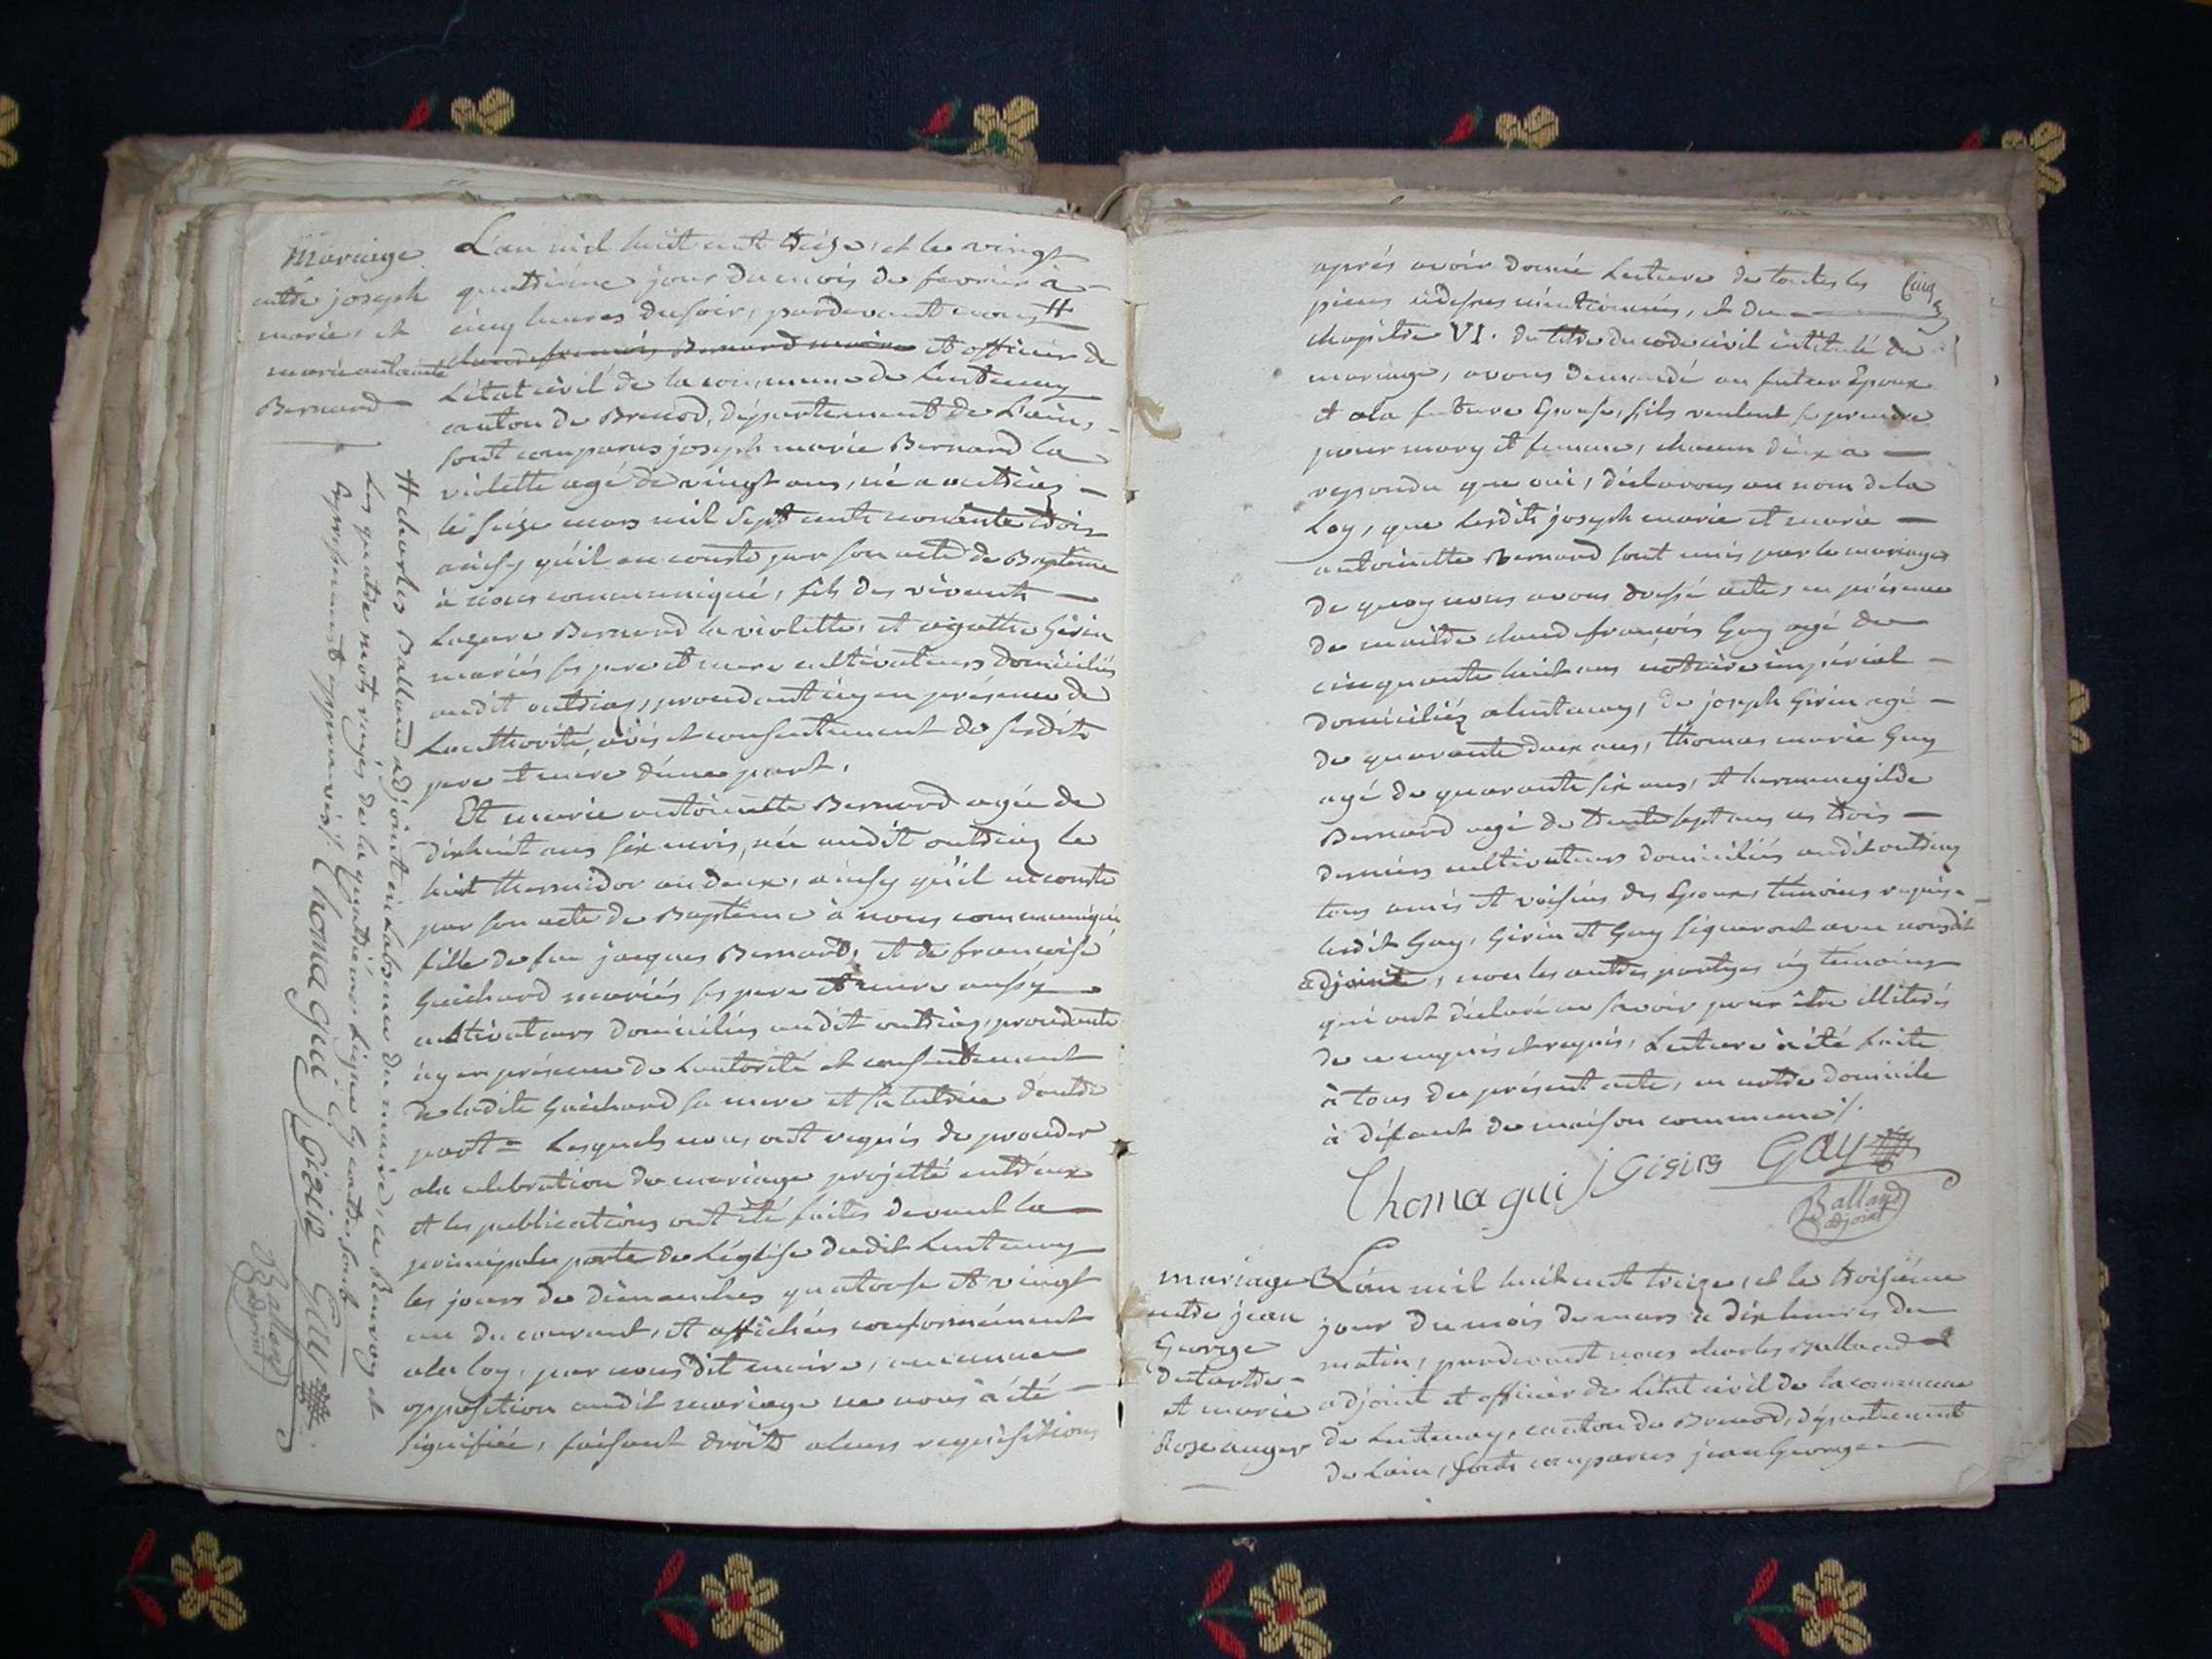 Mariage
entre joseph
marie, et
marie antoinette
Bernard
L'an mil huit cent treize, et le vingt
quatrième jour du mois de fevrier à
cinq heures du soir, pardevant nous #
claude françois Bernard maire et officier de
L'état civil de la commune de Lentenay
canton de Brenod, département de L'ain,
sont comparus joseph marie Bernard la
violette agé de vingt ans, né a outriaz
le seize mars mil sept cents nonente trois
ainsy qu'il en conste par son acte de Baptême
à nous communiqué, fils des vivants
Lazare Bernard la violette, et agathe Girin
mariés ses pere et mere cultivateurs domiciliés
audit outriaz, procedant icy en présence de
Lauthorité, avis et consentement de sesdits
pere et mère d'une part.
Et marie antoinette Bernard agée de
dixhuit ans six mois, née audit outriaz le
huit thermidor an deux, ainsy qu'il en conste
par son acte de Baptême à nous communiqué
fille de feu jacques Bernard, et de françoise
Guichard mariés ses pere et mere aussy
cultivateurs domiciliés audit outriaz, procedante
icy en présence de Lautorité et consentement
de ladite Guichard sa mere et sa tutrice d'outre
part = Lesquels nous ont requis de proceder
ala celebration du mariage projetté entr'eux
et les publications ont été faites devant la
principale porte de L'église dudit Lentenay
les jours de dimanches quatorse et vingt
un du courant, et affichées conformément
ala loy, par nous dit maire, aucune
opposition audit mariage ne nous à été
signifiée, faisant droit aleurs requisitions
# charles Balland adjoint en Labsence du maire, ce Renvoy et
Les quatre mots rayés de la quatrième Ligne cy contre sont
Expressement approuvés /. Thoma gui J Girin Gay
Balland
adjoint
Cinq
après avoir donné Lecture de toutes les
pieces cidessus mentionnés, et du
chapitre VI. du titre du code civil intitulé du
mariage, avons demandé au futur Epoux
et ala future Epouse, s'ils veulent se prendre
pour mary et femme, chacun d'eux a
repondu que oui, déclarons au nom de la
Loy, que Lesdits joseph marie et marie
antoinette Bernard sont unis par le mariage
de quoy nous avons dressé acte, en présence
de maitre claude françois Gay agé de
cinquante huit ans notaire impérial
domiciliéz alentenay, de joseph Girin agé
de quarante deux ans, thomas marie Guy
agé de quarante six ans, et hermenegilde
Bernard agé de trente sept ans ces trois
derniers cultivateurs domiciliés audit outriaz
tous amis et voisins des Epoux témoins requis
Lesdit Gay, Girin et Guy signeront avec nousdit
adjoint, non les autres partyes ny temoins
qui ont déclaré ne savoir pour être illiterés
de ce enquis et requis, Lecture à été faite
à tous du présent acte, en notre domicile
à défaut de maison commune /.
Thoma gui J Girin Gay
Balland
adjoint
mariage
entre jean
George
et marie
Rose auger
L'an mil huit cent treize, et le troisième
jour du mois de mars à dix heures du
matin, pardevant nous charles Balland
adjoint et officier de L'état civil de la commune
de Lentenay, canton de Brenod, département
de Lain, sont comparus jean George